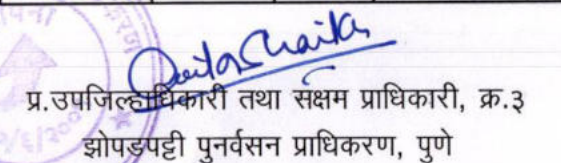 प्र.उपजिल्हाधिकारी तथा सक्षम प्राधिकारी, क्र.३
झोपडपट्टी पुनर्वसन प्राधिकरण, पुणे